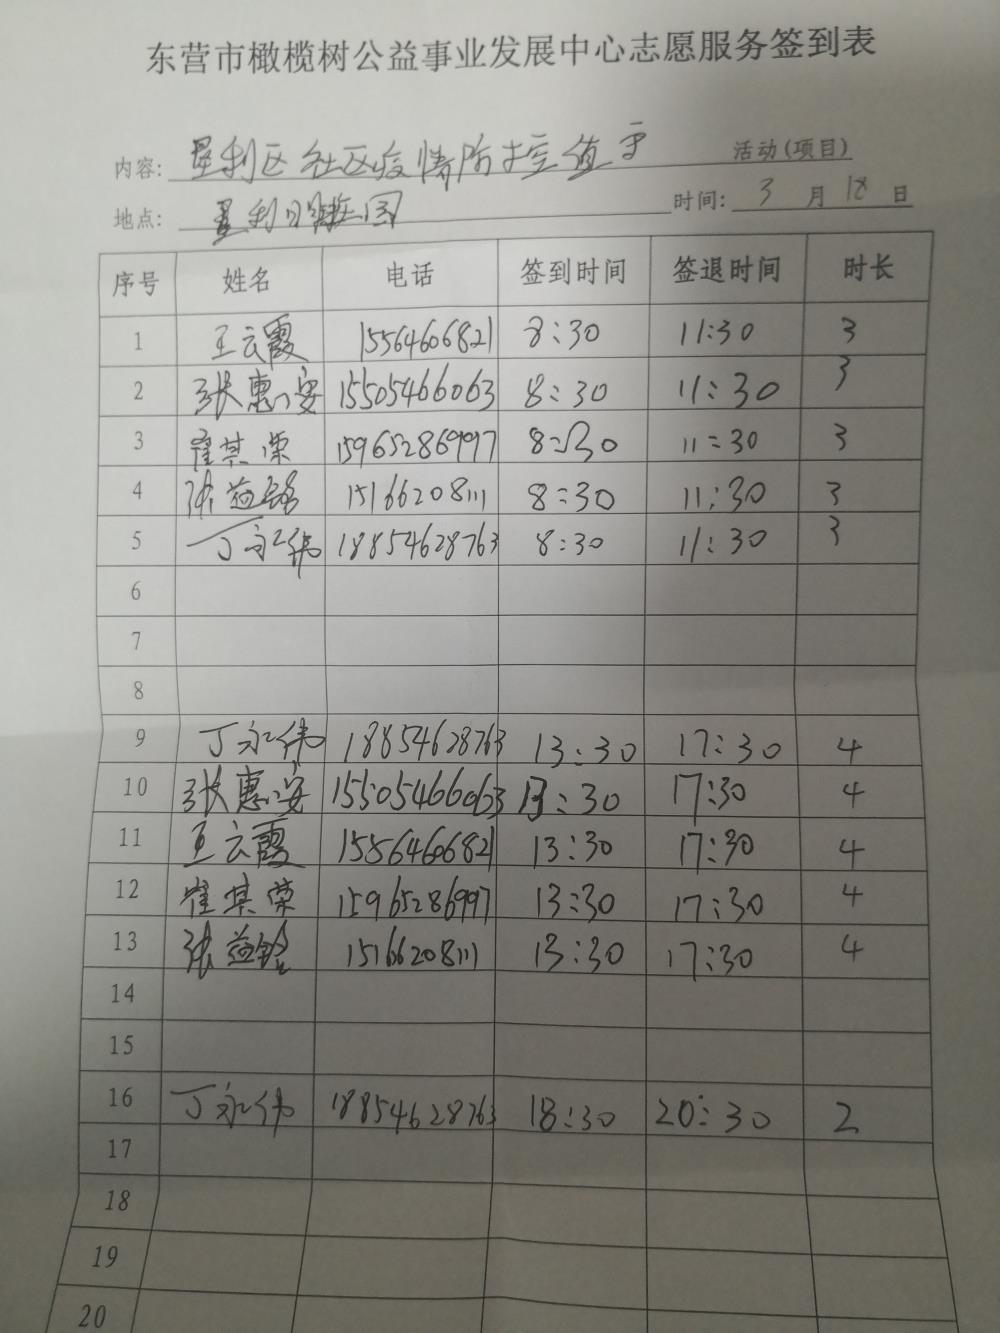 东营市橄榄树公益事业发展中心志愿服务签到表
内容: 垦利区社区疫情防控值守 活动(项目)
地点: 垦利 园 时间: 3 月 18 日
序号 姓名 电话 签到时间 签退时间 时长
1 王云霞 15564606821 8:30 11:30 3
2 张惠安 15505466063 8:30 11:30 3
3 崔其荣 15965286997 8:30 11:30 3
4 张益铭 15166208111 8:30 11:30 3
5 丁永伟 18854628763 8:30 11:30 3
6
7
8
9 丁永伟 18854628763 13:30 17:30 4
10 张惠安 15505466063 13:30 17:30 4
11 王云霞 15564606821 13:30 17:30 4
12 崔其荣 15965286997 13:30 17:30 4
13 张益铭 15166208111 13:30 17:30 4
14
15
16 丁永伟 18854628763 18:30 20:30 2
17
18
19
20